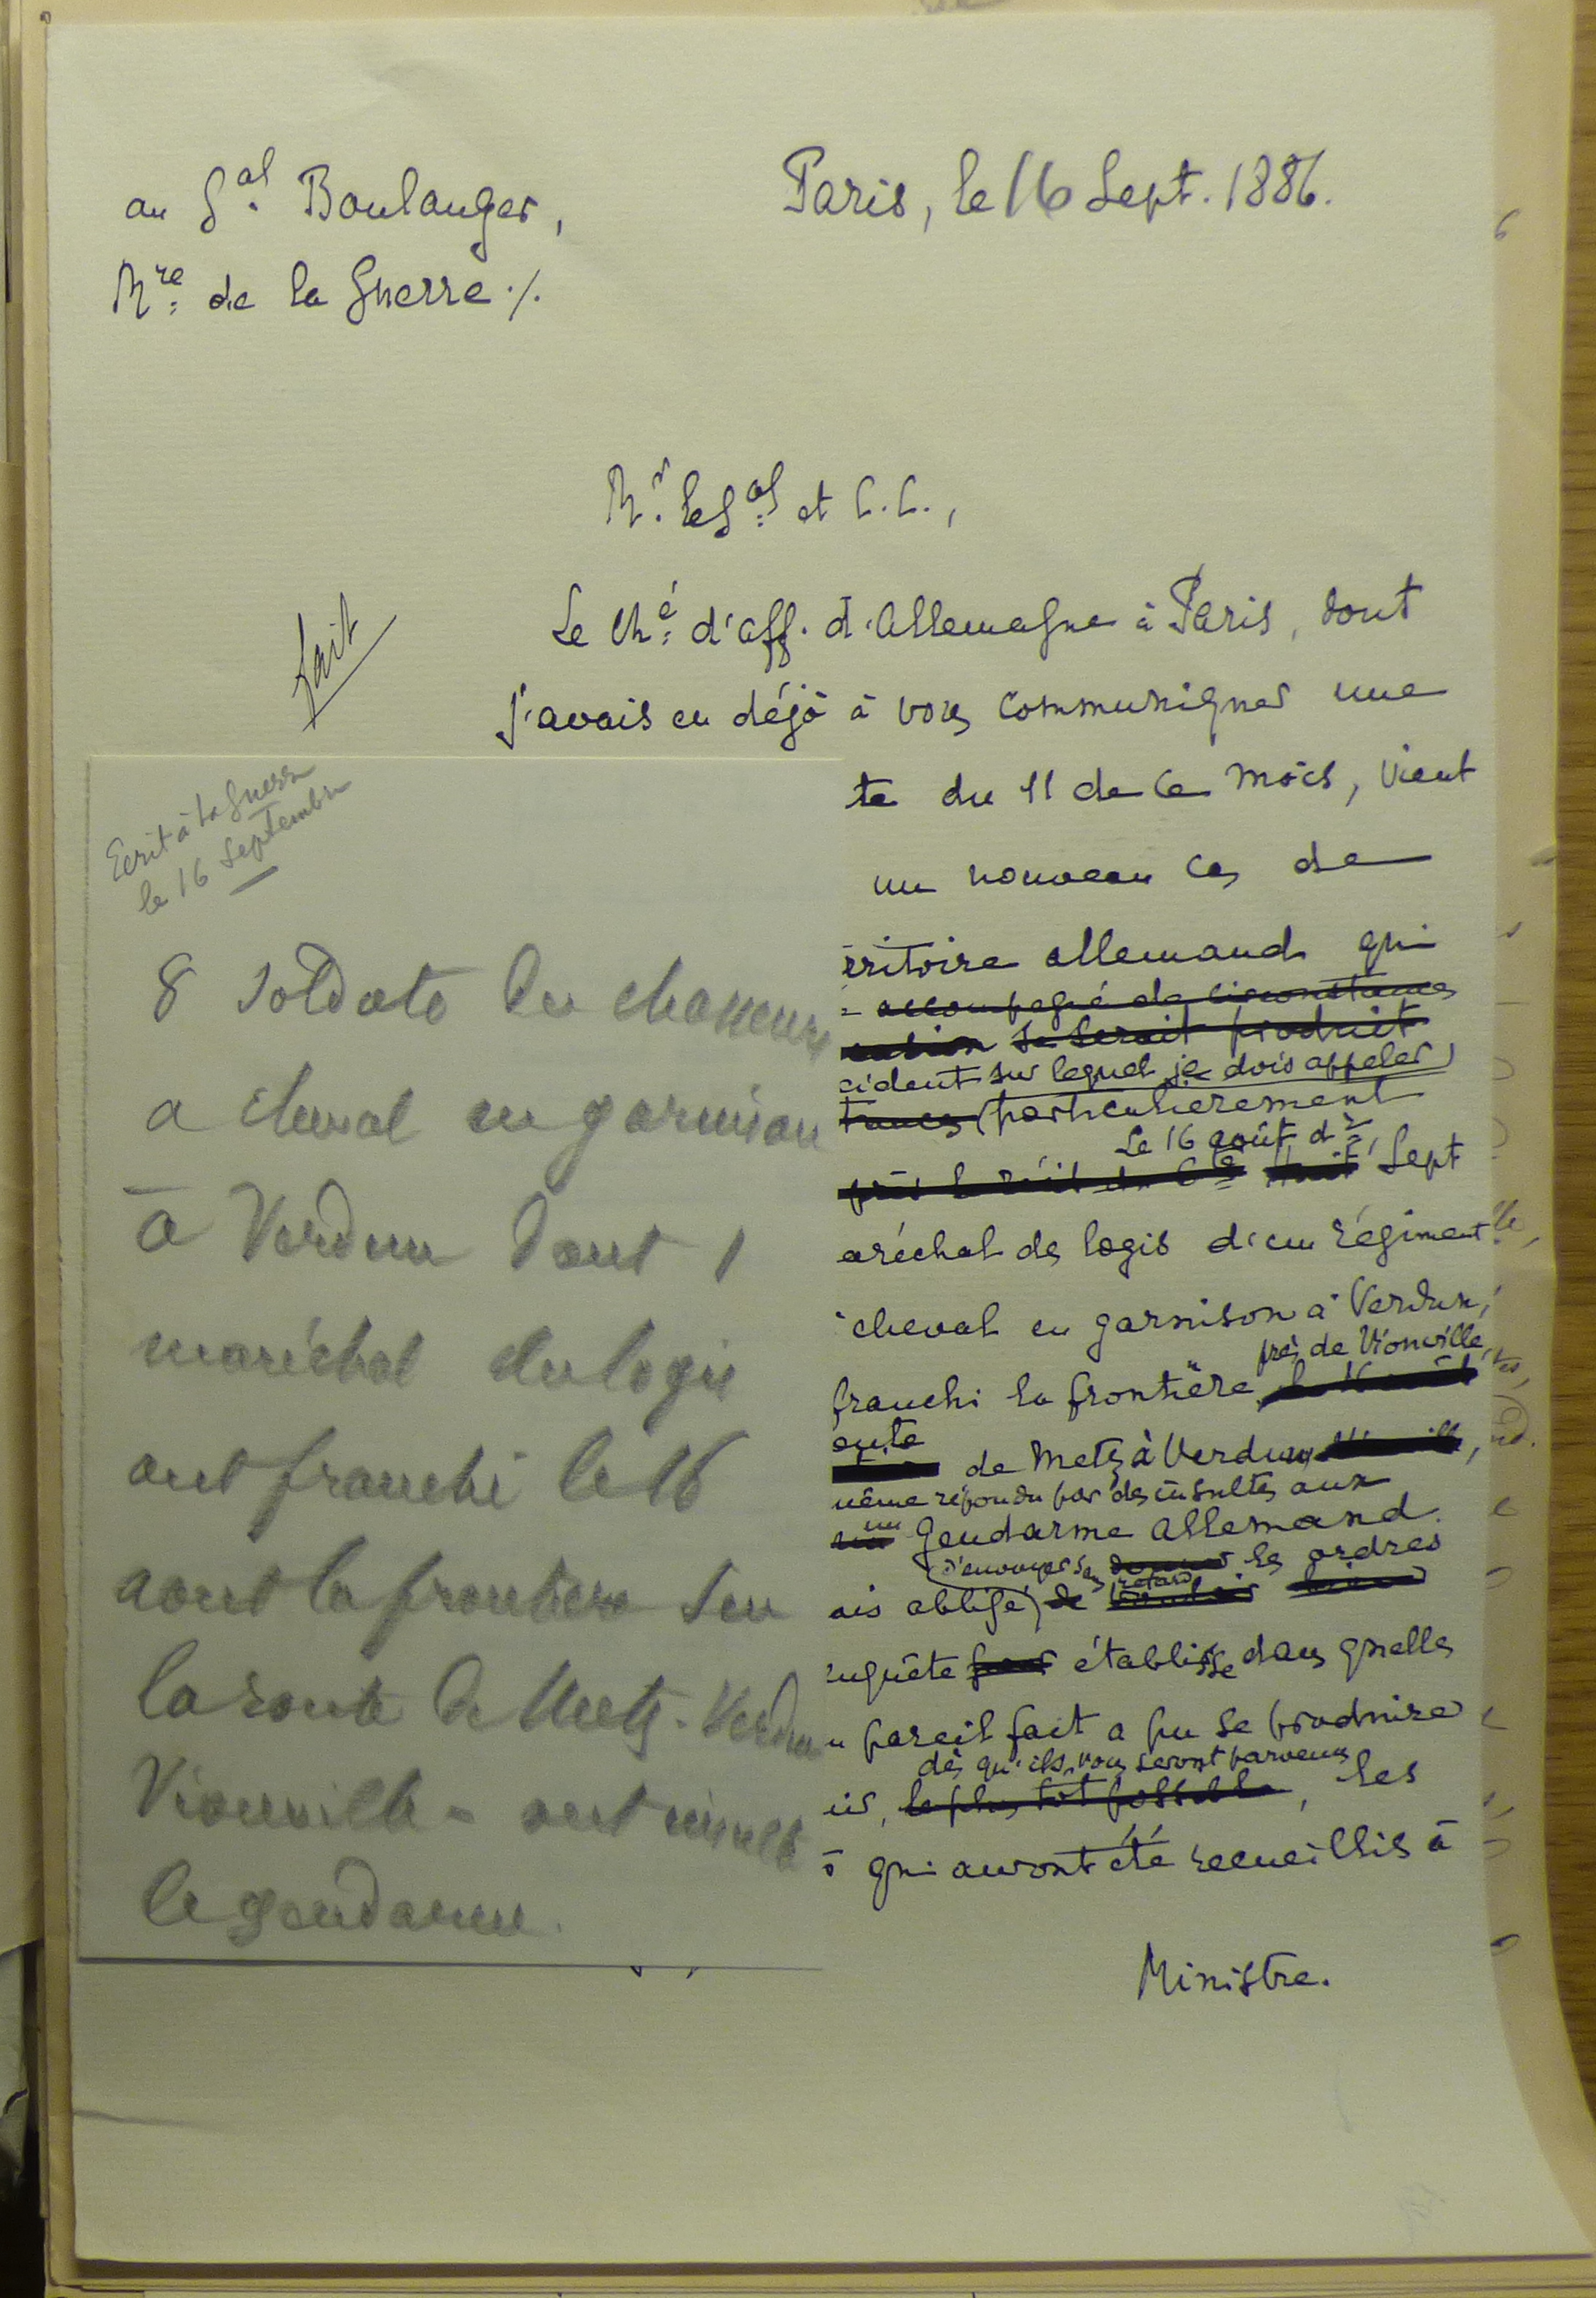 au Gal. Boulanger,
Mre. de la Guerre ./.
Paris, le 16 Sept. 1886.
Mr. le Gal. et C.C.,
fait
Le Ché. d'aff. d'Allemagne à Paris, dont
j'avais eu déjà à vous communiquer une
te du 11 de ce mois, vient
un nouveau cas de
rritoire allemand qui
accompagné de circonstances
se serait produit
cident sur lequel je dois appeler
particulièrement
Le 16 août dr.,
Sept
aréchal des logis d'un régiment
cheval en garnison à Verdun,
près de Vionville,
franchi la frontière
oute
de Metz à Verdun,
même répondu par des insultes aux
un
gendarme allemand.
d'envoyer sans retard les ordres
ais obligé de
nquête pour établisse dans quelles
n pareil fait a pu se produire
dès qu'ils vous seront parvenus
ir, le plus tôt possible, les
s qui auront été recueillis à
Ministre.
Ecrit à la Guerre
le 16 Septembre
8 soldats des chasseurs
a cheval en garnison
à Verdun dont 1
maréchal des logis
ont franchi le 16
aout la frontiere sur
la route de Metz-Verdun
Vionville - ont insulté
le gendarme.